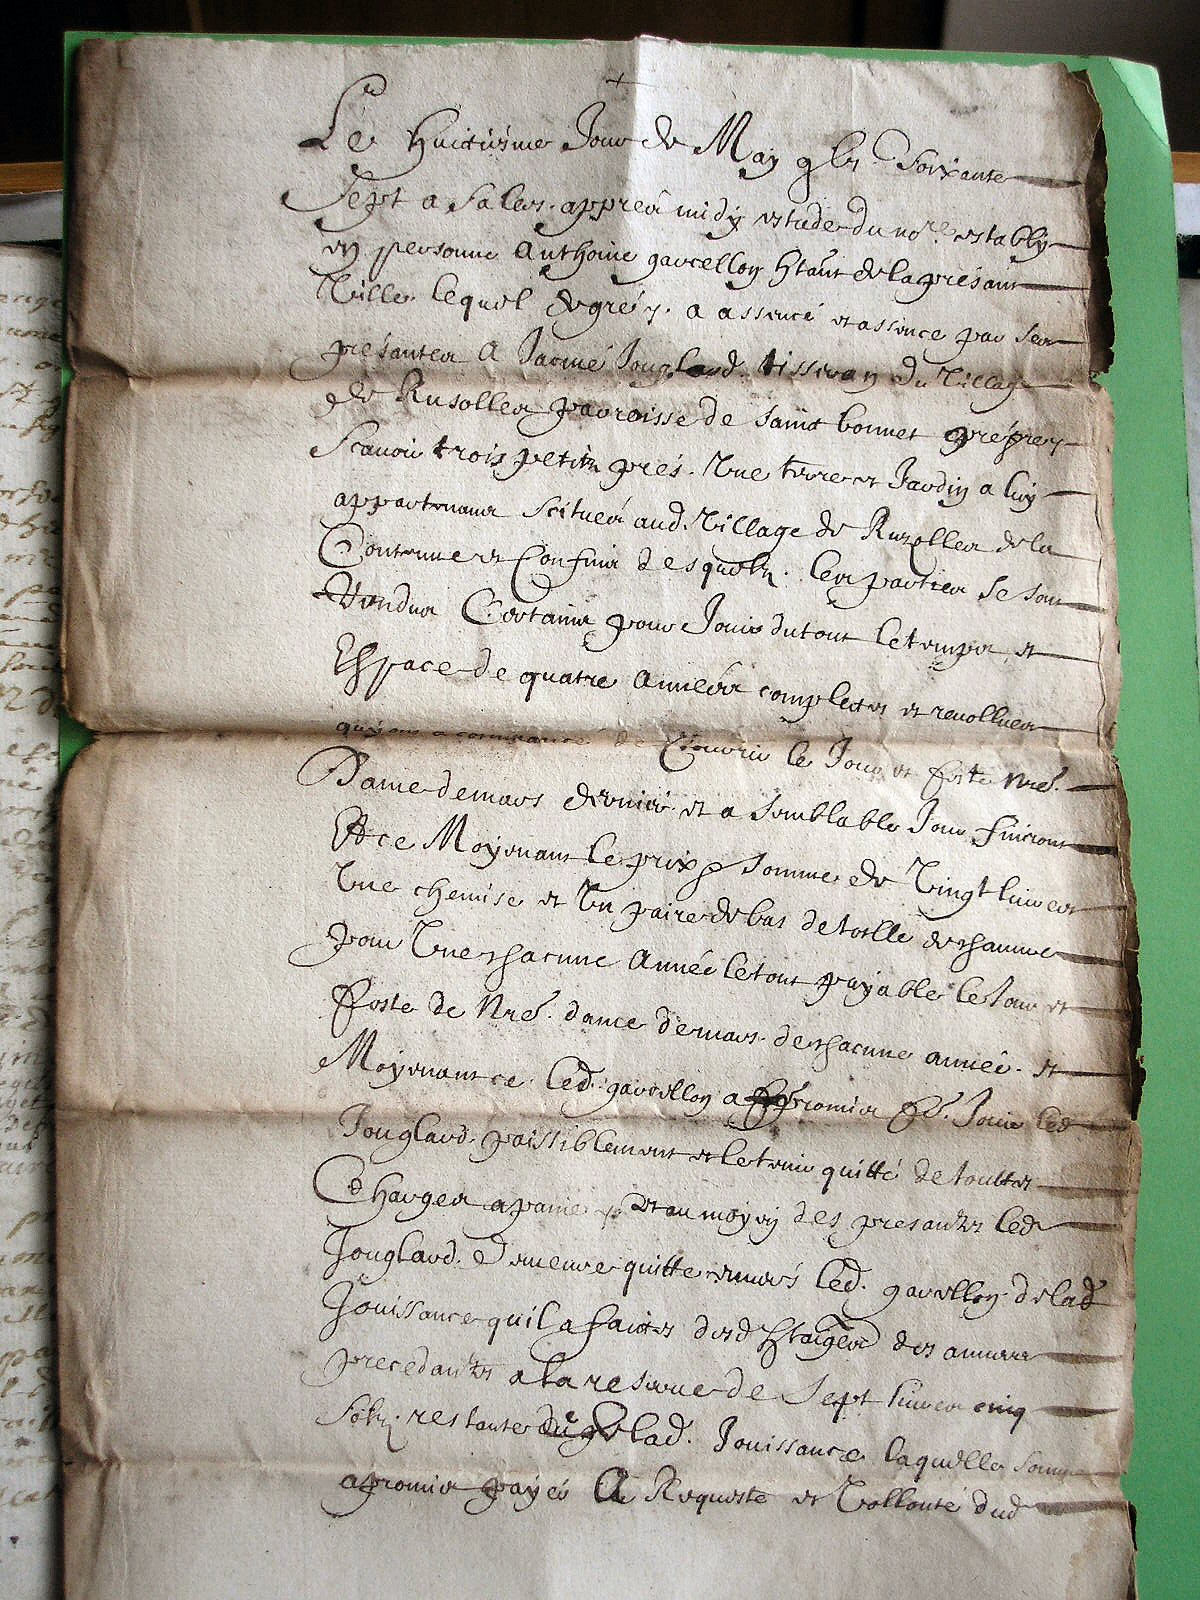 +
Le Huictiesme Jour de May g bi c Soixante
Sept a Salers appres midy estude du no.re establi
en personne Anthoine garcellon htant de la presant
Ville lequel de gré a assencé et assence par ses
presantes A Jacme Jouglard tisseran du Village
de Rusolles parroisse de sainct bonnet
Scavoir trois petitz prés Une terre et Jardin a luy
appartenans Scitués aud. Village de Ruzolles de la
Contenue et Confins desquelz les parties se sont
Rendus Certains pour Jouir du tout le temps et
Espace de quatre années complectes et revollues
quy ont a commancé de Courrir le Jour et feste Nre.
Dame de mars dernier et a semblable Jour finiront
Et ce Moyenant le prix et somme de Vingt livres
Une chemise et Un paire de bas de toille de chanvre
pour Une chacune Année le tout payable le Jour et
feste de Nre. dame de mars de chacune année et
Moyenant ce led. garcellon a promis fe. Jouir led
Jouglard paissiblement et le tenir quitte de touttes
Charges a paine et au moyen des presantes led
Jouglard demeure quitte envers led. garcellon de lad
Jouissance quil a faictes desd. htaiges des annees
precedantes a la reserve de Sept livres cinq
solz restants de lad. Jouissance laquelle somme
a promis payer A la Requeste et Vollonté dud